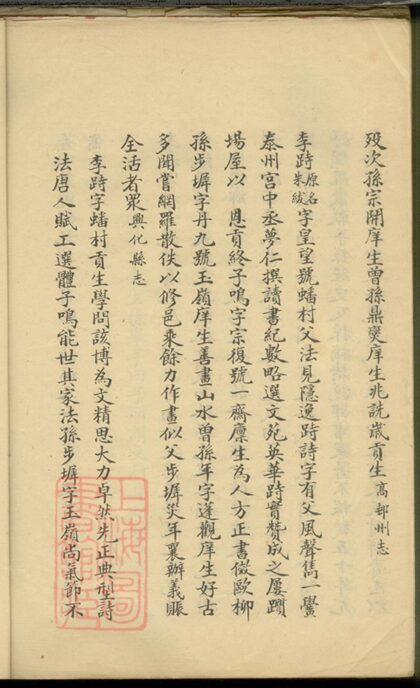 歿次孫宗開庠生曾孫鼎奭庠生兆詵歲貢生高郵州志
李跱原名朱紱字皇望號蟠村父法見隱逸跱詩字有父風聲雋一黌
泰州宮中丞夢仁撰讀書紀數略選文苑英華跱實贊成之屢躓
場屋以 恩貢終子鳴字宗復號一齋廪生為人方正書倣歐柳
孫步墀字丹九號玉嶺庠生善畫山水曾孫年字逢觀庠生好古
多聞嘗網羅散佚以修邑乘餘力作畫似父步墀災年襄辦義賑
全活者眾興化縣志
李跱字蟠村貢生學問該博為文精思大力卓然先正典型詩
法唐人賦工選體子鳴能世其家法孫步墀字玉嶺尚氣節不